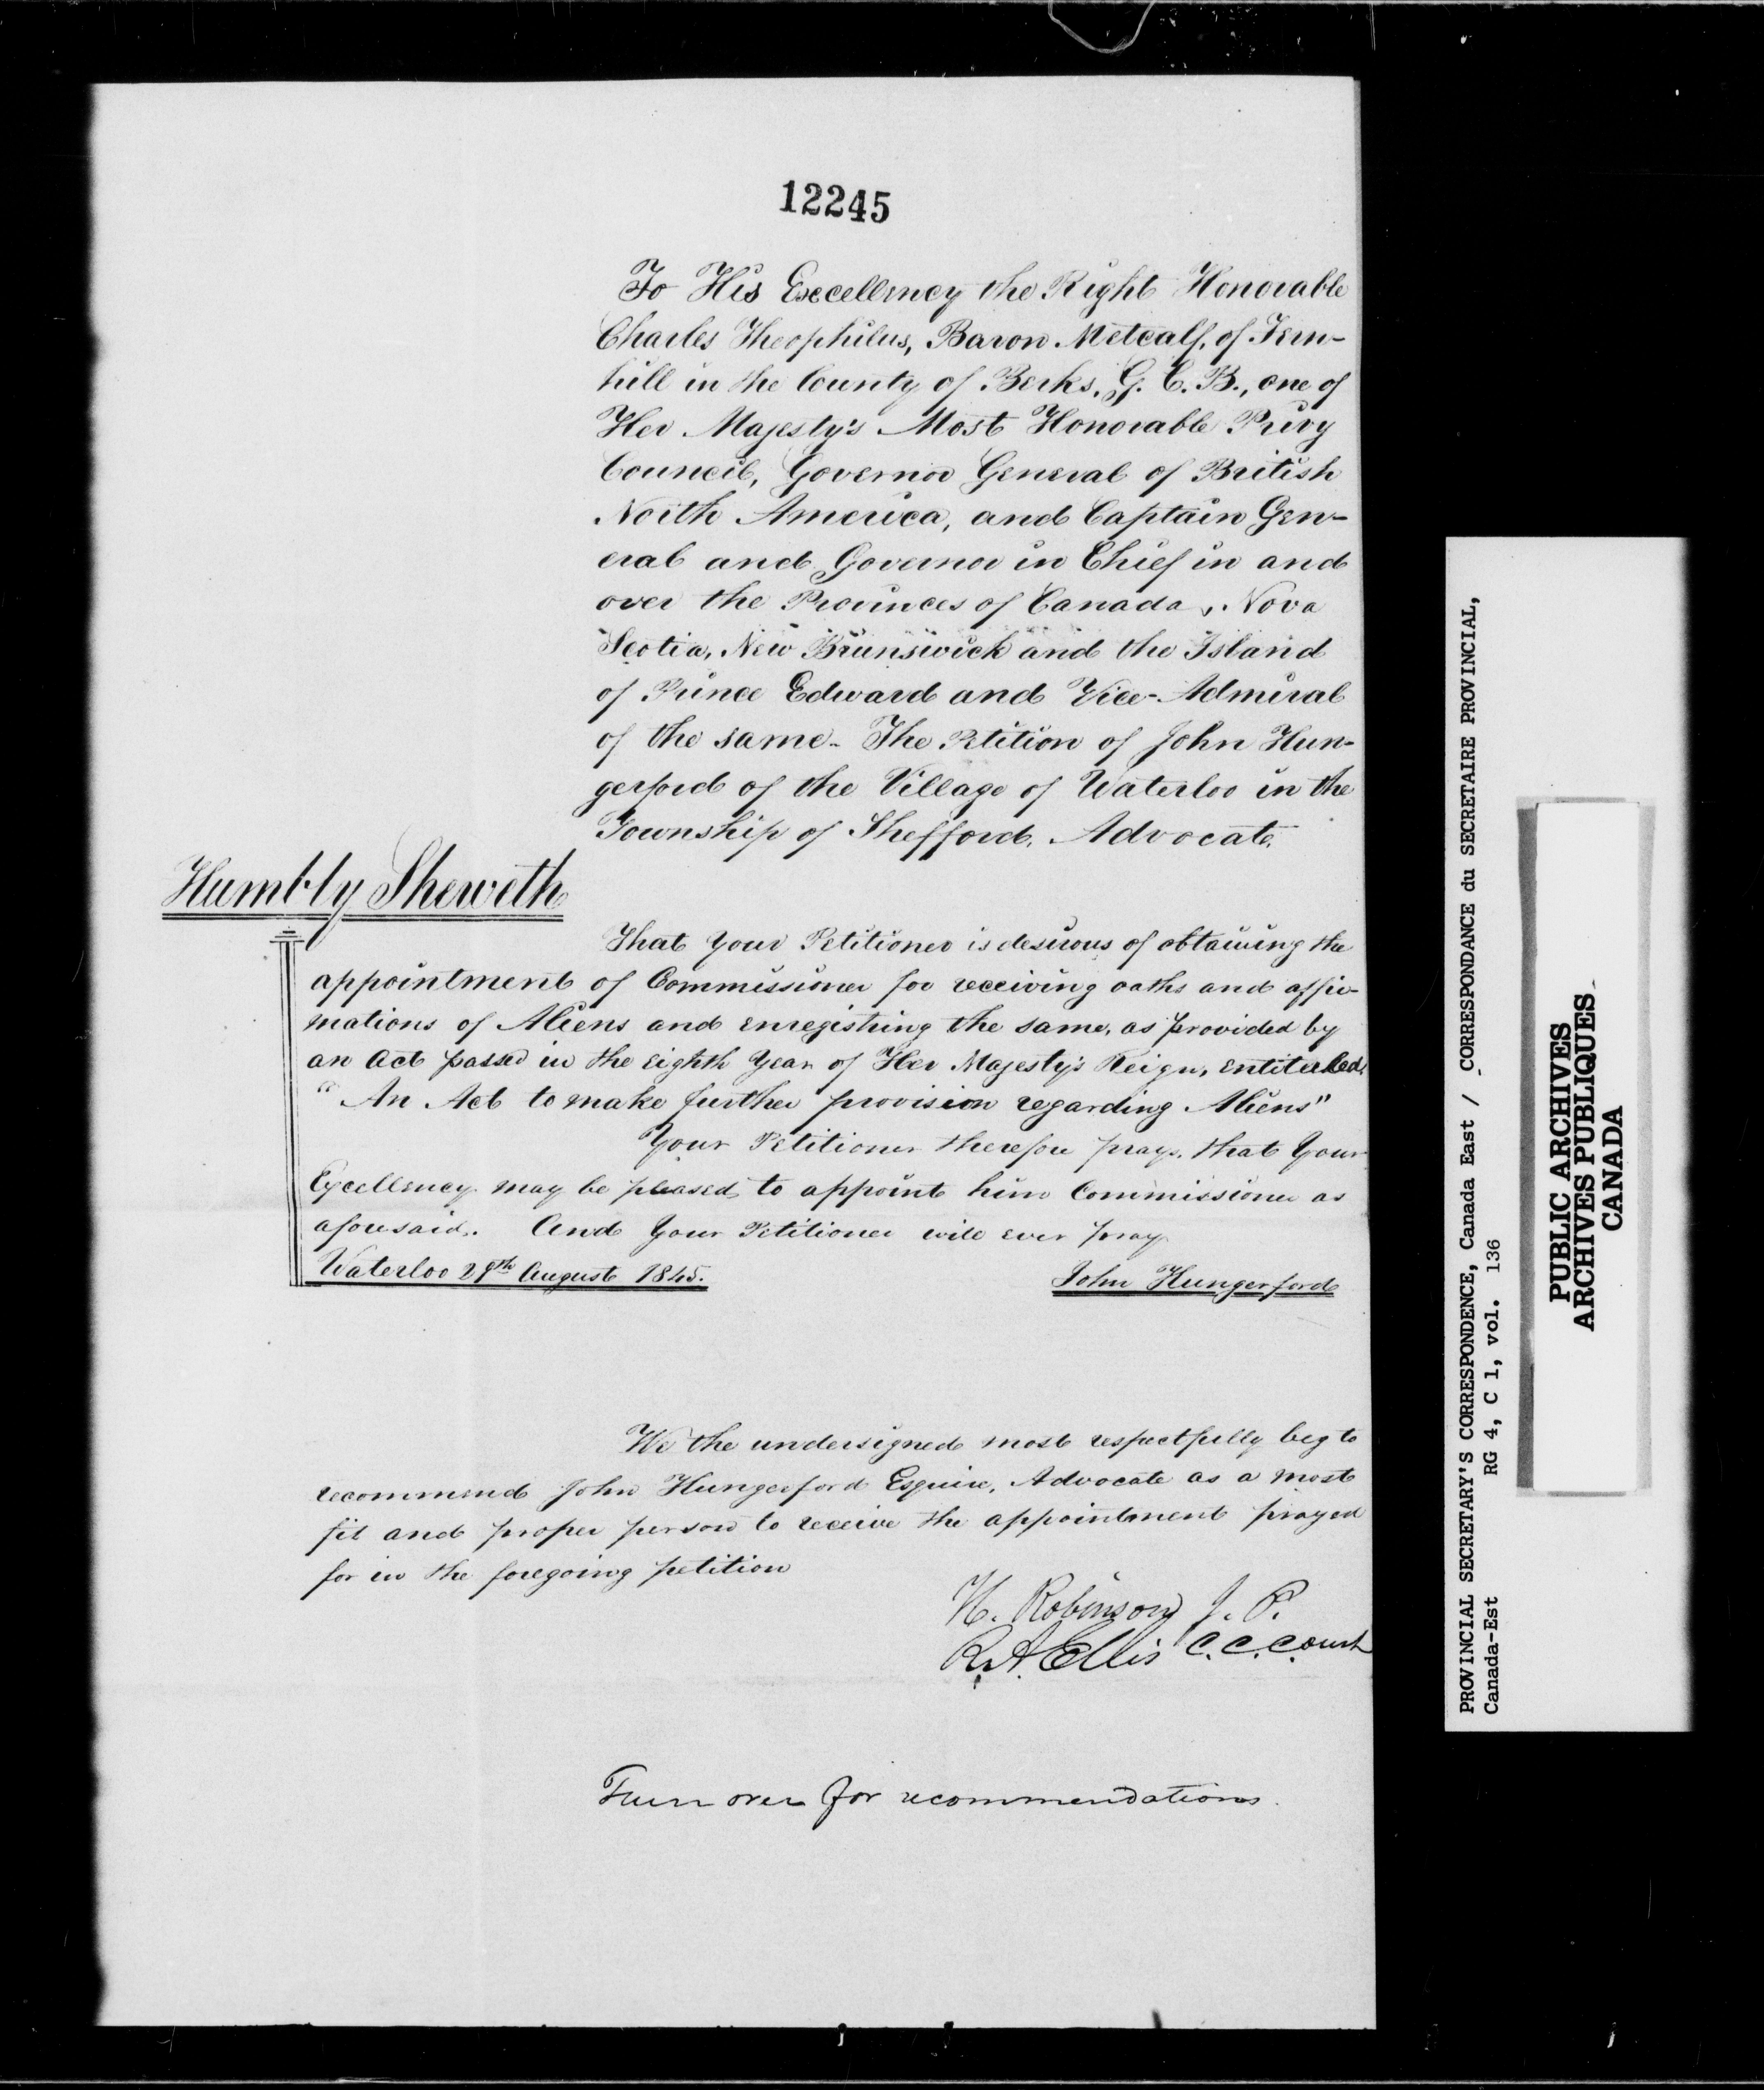 12245
To His Excellency the Right Honorable
Charles Theophilus, Baron Metcalf, of Fern-
hill in the County of Berks, G. C. B., one of
Her Majesty's Most Honorable Privy
Council, Governor General of British
North America, and Captain Gen-
eral and Governor in Chief in and
over the Provinces of Canada, Nova
Scotia, New Brunswick and the Island
of Prince Edward and Vice-Admiral
of the same. The Petition of John Hun-
gerford of the Village of Waterloo in the
Township of Shefford, Advocate.
Humbly Sheweth
That Your Petitioner is desirous of obtaining the
appointment of Commissioner for receiving oaths and affir-
mations of Aliens and enregistring the same, as provided by
an Act passed in the eighth Year of Her Majesty's Reign, entituled,
"An Act to make further provision regarding Aliens"
Your Petitioner therefore prays, that Your
Excellency may be pleased to appoint him Commissioner as
aforesaid. And Your Petitioner will ever pray.
Waterloo 29th August 1845.
John Hungerford
We the undersigned most respectfully beg to
recommend John Hungerford Esquire, Advocate as a most
fit and proper person to receive the appointment prayed
for in the foregoing petition
H. Robinson J. P.
R. A. Ellis C. C. Court
Turn over for recommendations.
PROVINCIAL SECRETARY'S CORRESPONDENCE, Canada East / CORRESPONDANCE du SECRETAIRE PROVINCIAL,
Canada-Est RG 4, C 1, vol. 136
PUBLIC ARCHIVES
ARCHIVES PUBLIQUES
CANADA